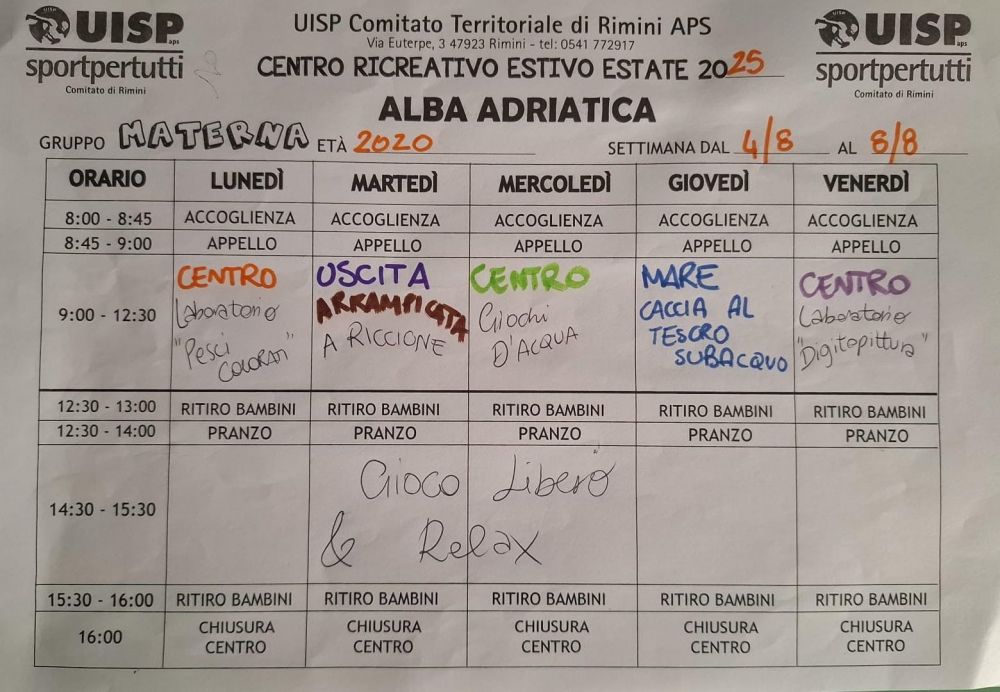 UISP aps
sportpertutti
Comitato di Rimini
UISP Comitato Territoriale di Rimini APS
Via Euterpe, 3 47923 Rimini - tel: 0541 772917
CENTRO RICREATIVO ESTIVO ESTATE 2025
UISP aps
sportpertutti
Comitato di Rimini
ALBA ADRIATICA
GRUPPO MATERNA ETÀ 2020 SETTIMANA DAL 4/8 AL 8/8
ORARIO LUNEDÌ MARTEDÌ MERCOLEDÌ GIOVEDÌ VENERDÌ
8:00 - 8:45 ACCOGLIENZA ACCOGLIENZA ACCOGLIENZA ACCOGLIENZA ACCOGLIENZA
8:45 - 9:00 APPELLO APPELLO APPELLO APPELLO APPELLO
9:00 - 12:30
CENTRO
Laboratorio
"Pesci
COLORATI"
USCITA
ARRAMPICATA
A RICCIONE
CENTRO
Giochi
D'ACQUA
MARE
CACCIA AL
TESORO
SUBACQUO
CENTRO
Laboratorio
"Digitopittura"
12:30 - 13:00 RITIRO BAMBINI RITIRO BAMBINI RITIRO BAMBINI RITIRO BAMBINI RITIRO BAMBINI
12:30 - 14:00 PRANZO PRANZO PRANZO PRANZO PRANZO
14:30 - 15:30
Gioco Libero
& Relax
15:30 - 16:00 RITIRO BAMBINI RITIRO BAMBINI RITIRO BAMBINI RITIRO BAMBINI RITIRO BAMBINI
16:00 CHIUSURA CENTRO CHIUSURA CENTRO CHIUSURA CENTRO CHIUSURA CENTRO CHIUSURA CENTRO